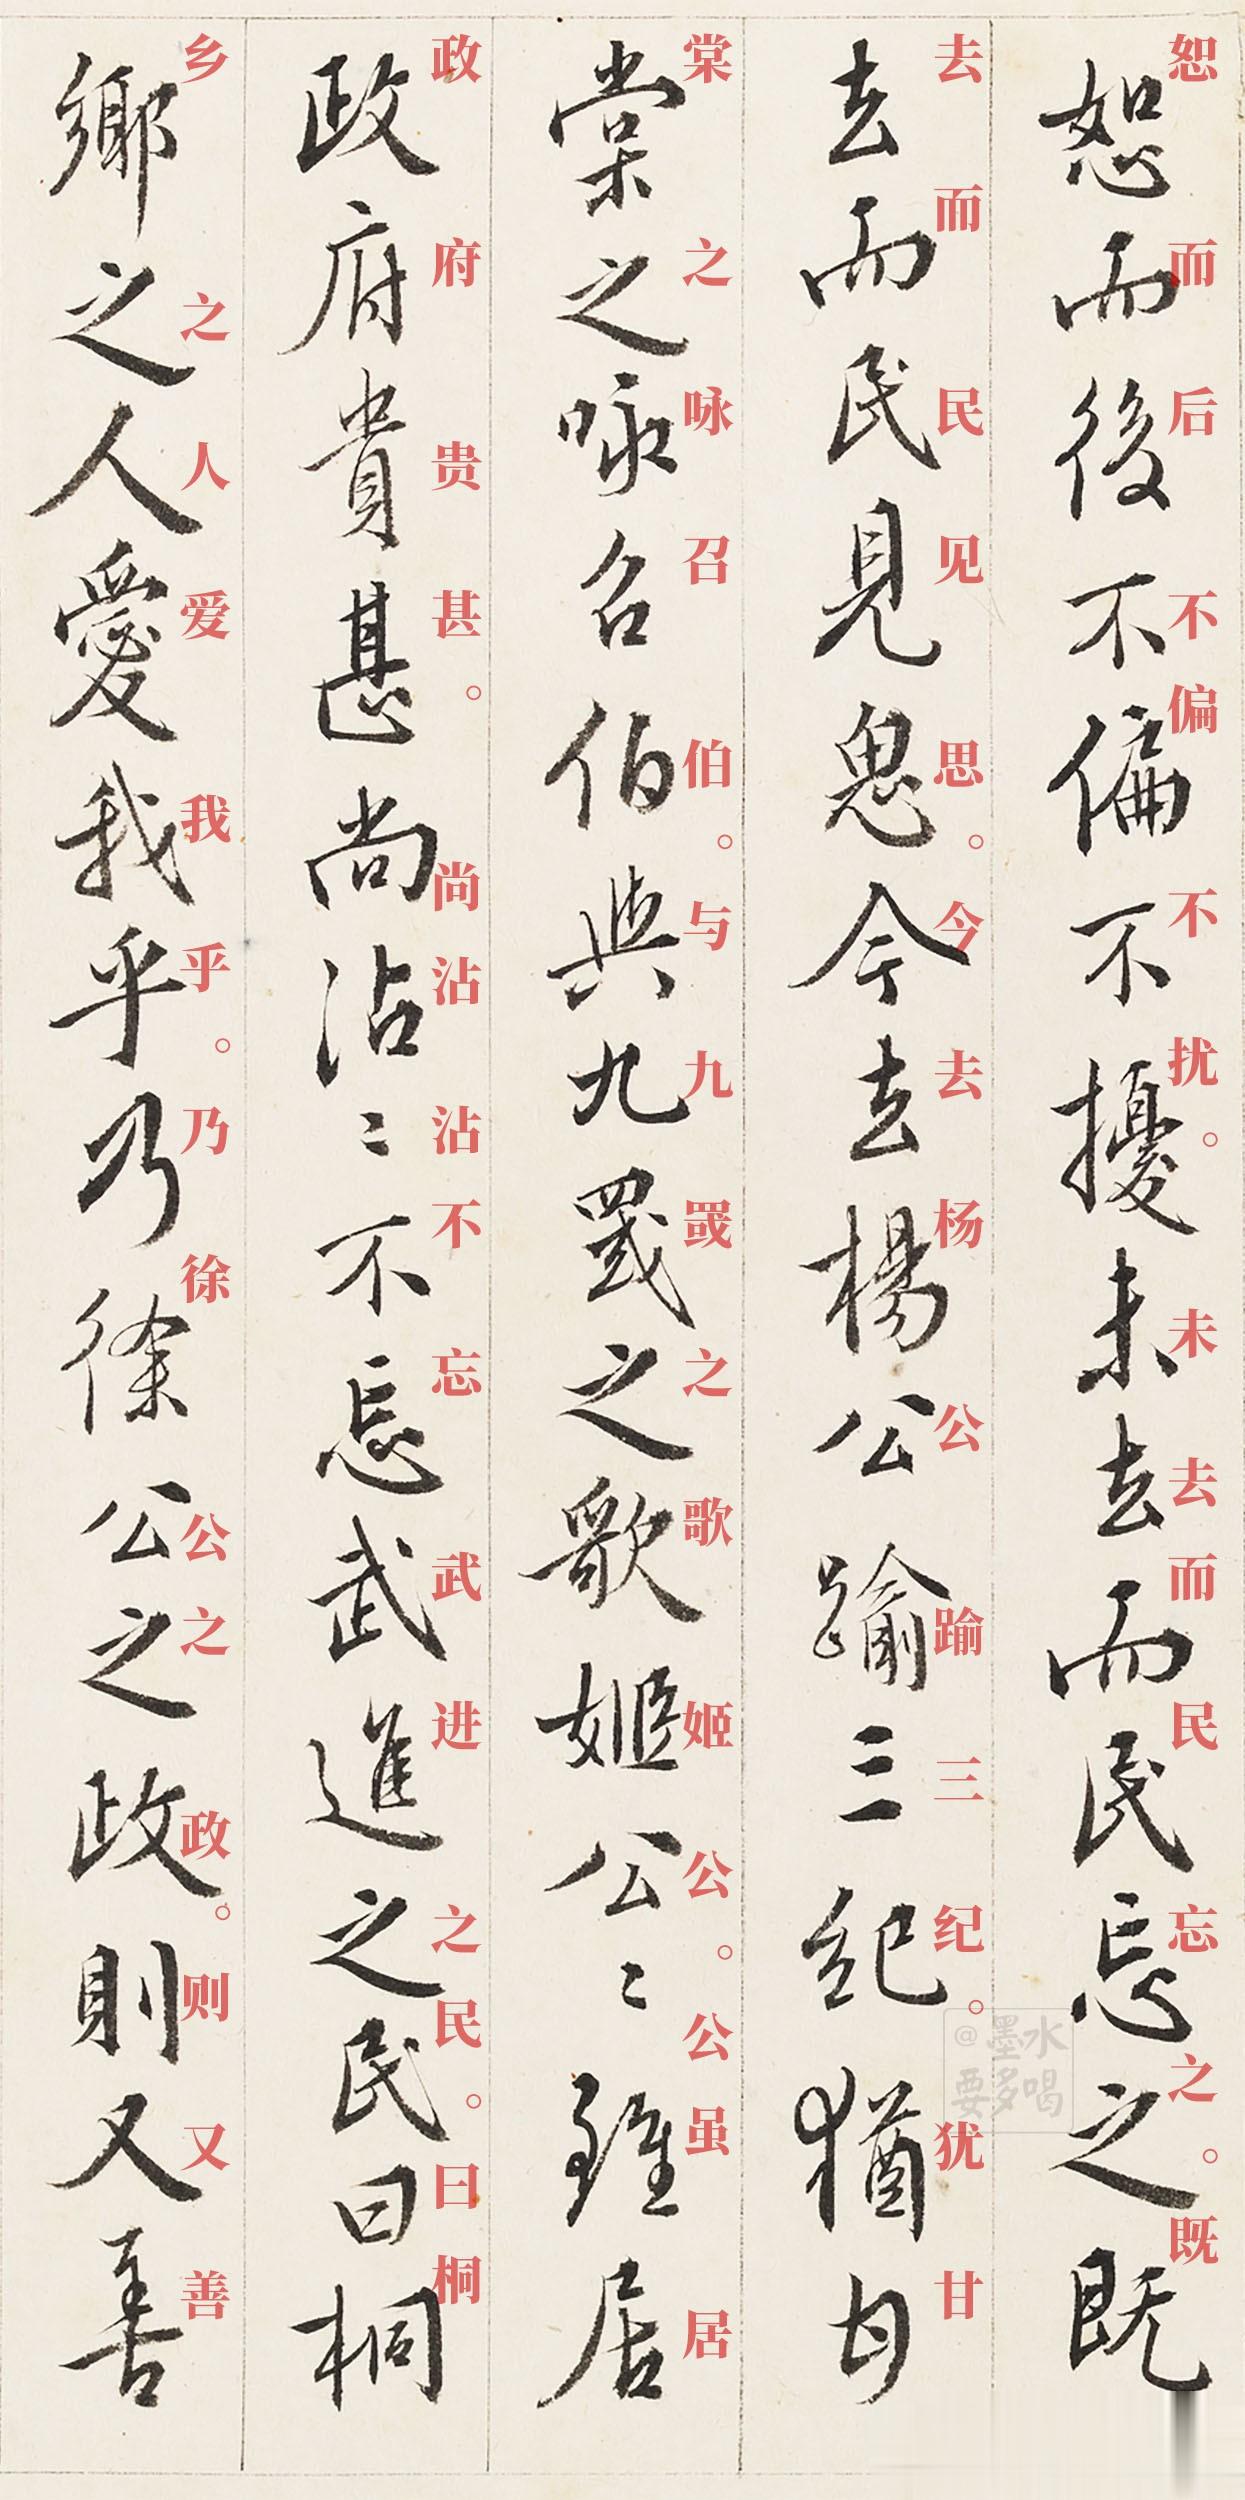 恕而後不偏不擾未去而民忘之既
恕而后不偏不扰。未去而民忘之。既
去而民見思今去楊公踰三紀猶甘
去而民见思。今去杨公踰三纪。犹甘
棠之咏召伯與九罭之歌姬公〻雖居
棠之咏召伯。与九罭之歌姬公。公虽居
政府貴甚尚沾〻不忘武進之民曰桐
政府贵甚。尚沾沾不忘武进之民。曰桐
鄉之人愛我乎乃徐公之政則又善
乡之人爱我乎。乃徐公之政。则又善
@墨水
要多喝